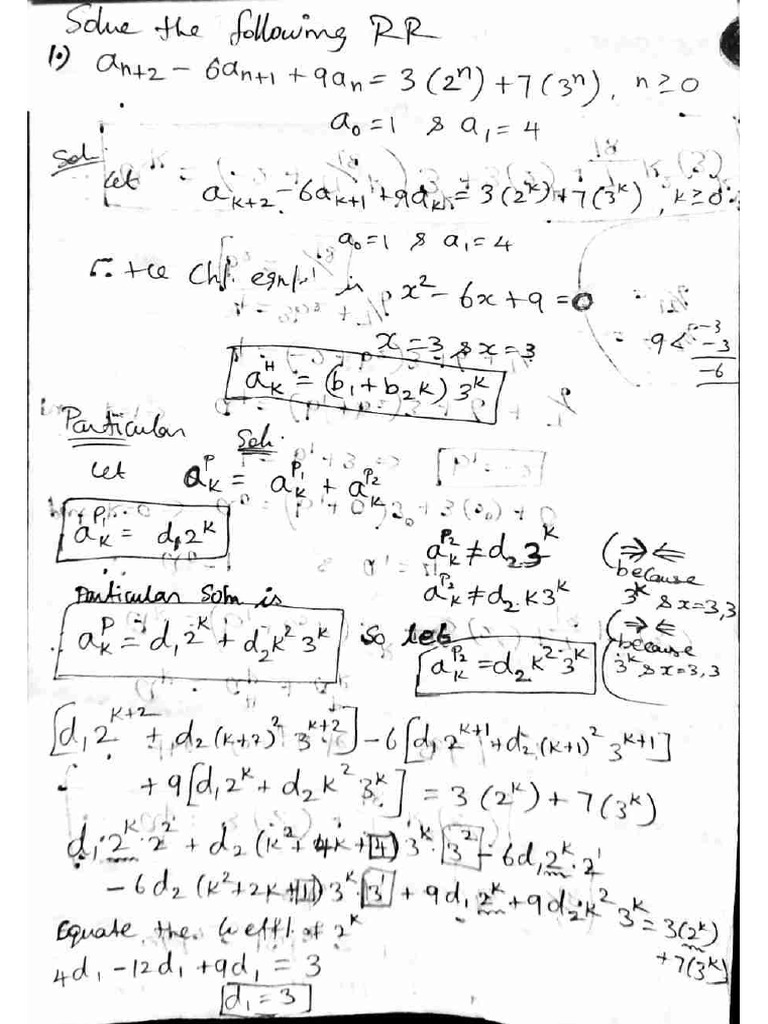 Solve the following RR
10) aₙ₊₂ − 6aₙ₊₁ + 9aₙ = 3(2ⁿ) + 7(3ⁿ), n ≥ 0
a₀ = 1 & a₁ = 4
Sol:
Let aₖ₊₂ − 6aₖ₊₁ + 9aₖ = 3(2ᵏ) + 7(3ᵏ), k ≥ 0
a₀ = 1 & a₁ = 4
is x² − 6x + 9 = 0
x = 3 & x = 3
−9 < −3
−3
−6
aₖᴴ = (b₁ + b₂k) 3ᵏ
Particular Soln.
Let aₖᴾ = aₖᴾ¹ + aₖᴾ²
aₖᴾ¹ = d₁2ᵏ
aₖᴾ² ≠ d₂3ᵏ (⇒⇐ because 3ᵏ & x=3,3
aₖᴾ² ≠ d₂k3ᵏ (⇒⇐ because 3ᵏ & x=3,3
so let aₖᴾ² = d₂k²3ᵏ
Particular Soln is
aₖᴾ = d₁2ᵏ + d₂k²3ᵏ
[d₁2ᵏ⁺² + d₂(k+2)² 3ᵏ⁺²] − 6[d₁2ᵏ⁺¹ + d₂(k+1)² 3ᵏ⁺¹]
+ 9[d₁2ᵏ + d₂k² 3ᵏ] = 3(2ᵏ) + 7(3ᵏ)
d₁·2ᵏ·2² + d₂(k² + 4k + 4)3ᵏ·3² − 6d₁2ᵏ·2¹
− 6d₂(k² + 2k + 1)3ᵏ·3¹ + 9d₁2ᵏ + 9d₂k² 3ᵏ = 3(2ᵏ)
+ 7(3ᵏ)
Equate the coeff. of 2ᵏ
4d₁ − 12d₁ + 9d₁ = 3
d₁ = 3